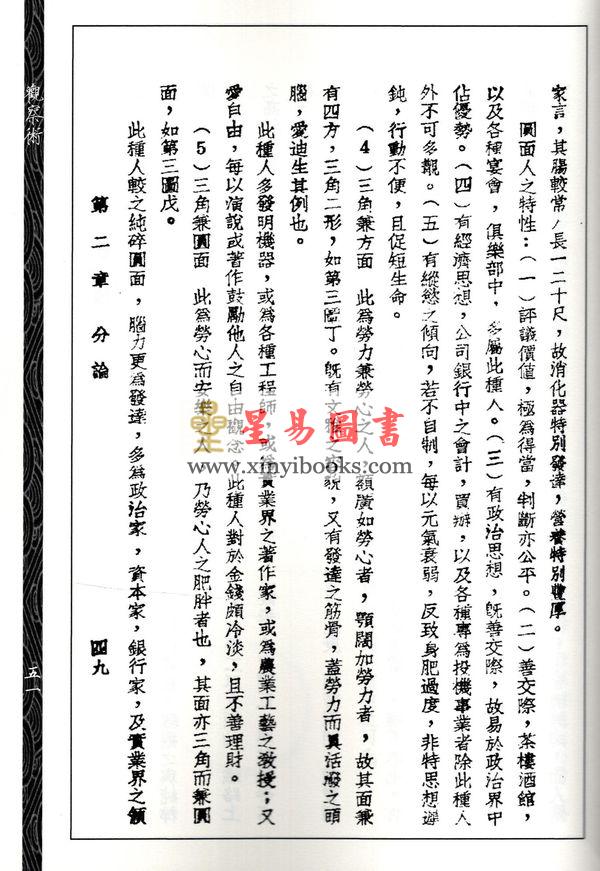 家言，其腸較常人長一二十尺，故消化器特別發達，營養特別豐厚。
圓面人之特性：（一）評議價值，極為得當，判斷亦公平。（二）善交際，茶樓酒館，
以及各種宴會，俱樂部中，多屬此種人。（三）有政治思想，既善交際，故易於政治界中
佔優勢。（四）有經濟思想，公司銀行中之會計，買辦，以及各種專為投機事業者除此種人
外不可多覯。（五）有縱慾之傾向，若不自制，每以元氣衰弱，反致身肥過度，非特思想遲
鈍，行動不便，且促短生命。
（4）三角兼方面　此為勞力兼勞心之人，額廣如勞心者，顎闊如勞力者，故其面兼
有四方，三角二形，如第三圖丁。既有文雅之容貌，又有發達之筋骨，蓋勞力而具活潑之頭
腦，愛迪生其例也。
此種人多發明機器，或為各種工程師，或為實業界之著作家，或為農業工藝之教授；又
愛自由，每以演說或著作鼓勵他人之自由觀念。此種人對於金錢頗冷淡，且不善理財。
（5）三角兼圓面　此為勞心而安樂之人，乃勞心人之肥胖者也，其面亦三角而兼圓
面，如第三圖戊。
此種人較之純碎圓面，腦力更為發達，多為政治家，資本家，銀行家，及實業界之領
第二章　分論
四九
觀察術
五一
星易圖書
www.xinyibooks.com